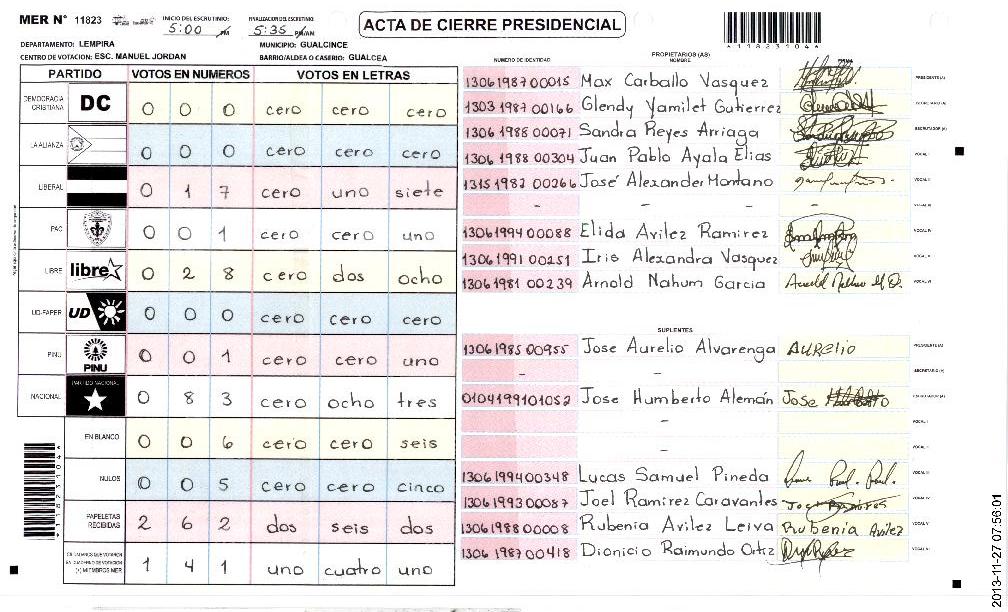 MER N° 11823
INICIO DEL ESCRUTINIO:
5:00 PM
FINALIZACION DEL ESCRUTINIO:
5:35 PM/AM
ACTA DE CIERRE PRESIDENCIAL
*11823104*
DEPARTAMENTO: LEMPIRA
MUNICIPIO: GUALCINCE
CENTRO DE VOTACION: ESC. MANUEL JORDAN
BARRIO/ALDEA O CASERIO: GUALCEA
PARTIDO VOTOS EN NUMEROS VOTOS EN LETRAS
DEMOCRACIA CRISTIANA DC 0 0 0 cero cero cero
LA ALIANZA 0 0 0 cero cero cero
LIBERAL 0 1 7 cero uno siete
PAC 0 0 1 cero cero uno
LIBRE libre 0 2 8 cero dos ocho
UD-FAPER UD 0 0 0 cero cero cero
PINU PINU 0 0 1 cero cero uno
NACIONAL PARTIDO NACIONAL 0 8 3 cero ocho tres
EN BLANCO 0 0 6 cero cero seis
NULOS 0 0 5 cero cero cinco
PAPELETAS RECIBIDAS 2 6 2 dos seis dos
CIUDADANOS QUE VOTARON EN CUADERNO DE VOTACION (+) MIEMBROS MER 1 4 1 uno cuatro uno
PROPIETARIOS (AS)
NUMERO DE IDENTIDAD NOMBRE FIRMA
1306198700015 Max Carballo Vasquez PRESIDENTE(A)
1303198700166 Glendy Yamilet Gutierrez SECRETARIO(A)
1306198800071 Sandra Reyes Arriaga ESCRUTADOR(A)
1306198800304 Juan Pablo Ayala Elias VOCAL I
1315198700266 José Alexander Montano VOCAL II
- - - - VOCAL III
1306199400088 Elida Avilez Ramirez VOCAL IV
1306199100251 Iris Alexandra Vasquez VOCAL V
1306198100239 Arnold Nahum Garcia VOCAL VI
SUPLENTES
1306198500955 Jose Aurelio Alvarenga AURELIO PRESIDENTE(A)
- - SECRETARIO(A)
0104199101052 Jose Humberto Alemán Jose ESCRUTADOR(A)
- VOCAL I
- VOCAL II
1306199400348 Lucas Samuel Pineda VOCAL III
1306199300087 Joel Ramirez Caravantes VOCAL IV
1306198800008 Rubenia Avilez Leiva Rubenia Avilez VOCAL V
1306198700418 Dionicio Raimundo Ortiz VOCAL VI
2013-11-27 07:56:01